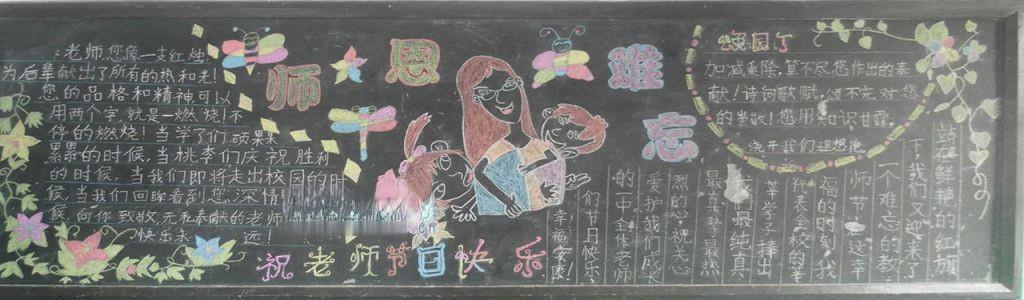 老师您像一支红烛
为后辈献出了所有的热和光!
您的品格和精神可以
用两个字就是一燃烧!不
停的燃烧!当学子们硕果
累累的时候,当桃李们庆祝胜利
的时候,当我们即将走出校园的时
候,当我们回眸看到您,深情
候向你致敬无私奉献的老师
快乐永远!
师恩难忘
祝老师节日快乐
颂园丁
加减乘除,算不尽您作出的奉
献!诗词歌赋,颂不完对您
的崇敬!您用知识甘露,
浇开我们理想
站在鲜艳的红旗
下,我们又迎来了
一个难忘的教
师节在这幸
福的时刻,我
代表全校的
莘学子捧出
最纯真
最真最热
烈的心祝关心
爱护我们成长
的中全体老师
们节日快乐、
幸福安康!